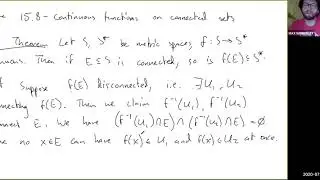 15.8 - Continuous functions on connected sets
Theorem Let S, S* be metric spaces, f: S → S*
nuous. Then if E ⊆ S is connected, so is f(E) ⊆ S*.
Suppose f(E) disconnected, i.e. ∃ U₁, U₂
nnecting f(E). Then we claim f⁻¹(U₁), f⁻¹(U₂)
connect E. We have (f⁻¹(U₁)∩E)∩(f⁻¹(U₂)∩E) = ∅
no x∈E can have f(x)∈U₁ and f(x)∈U₂ at once.
2020-07